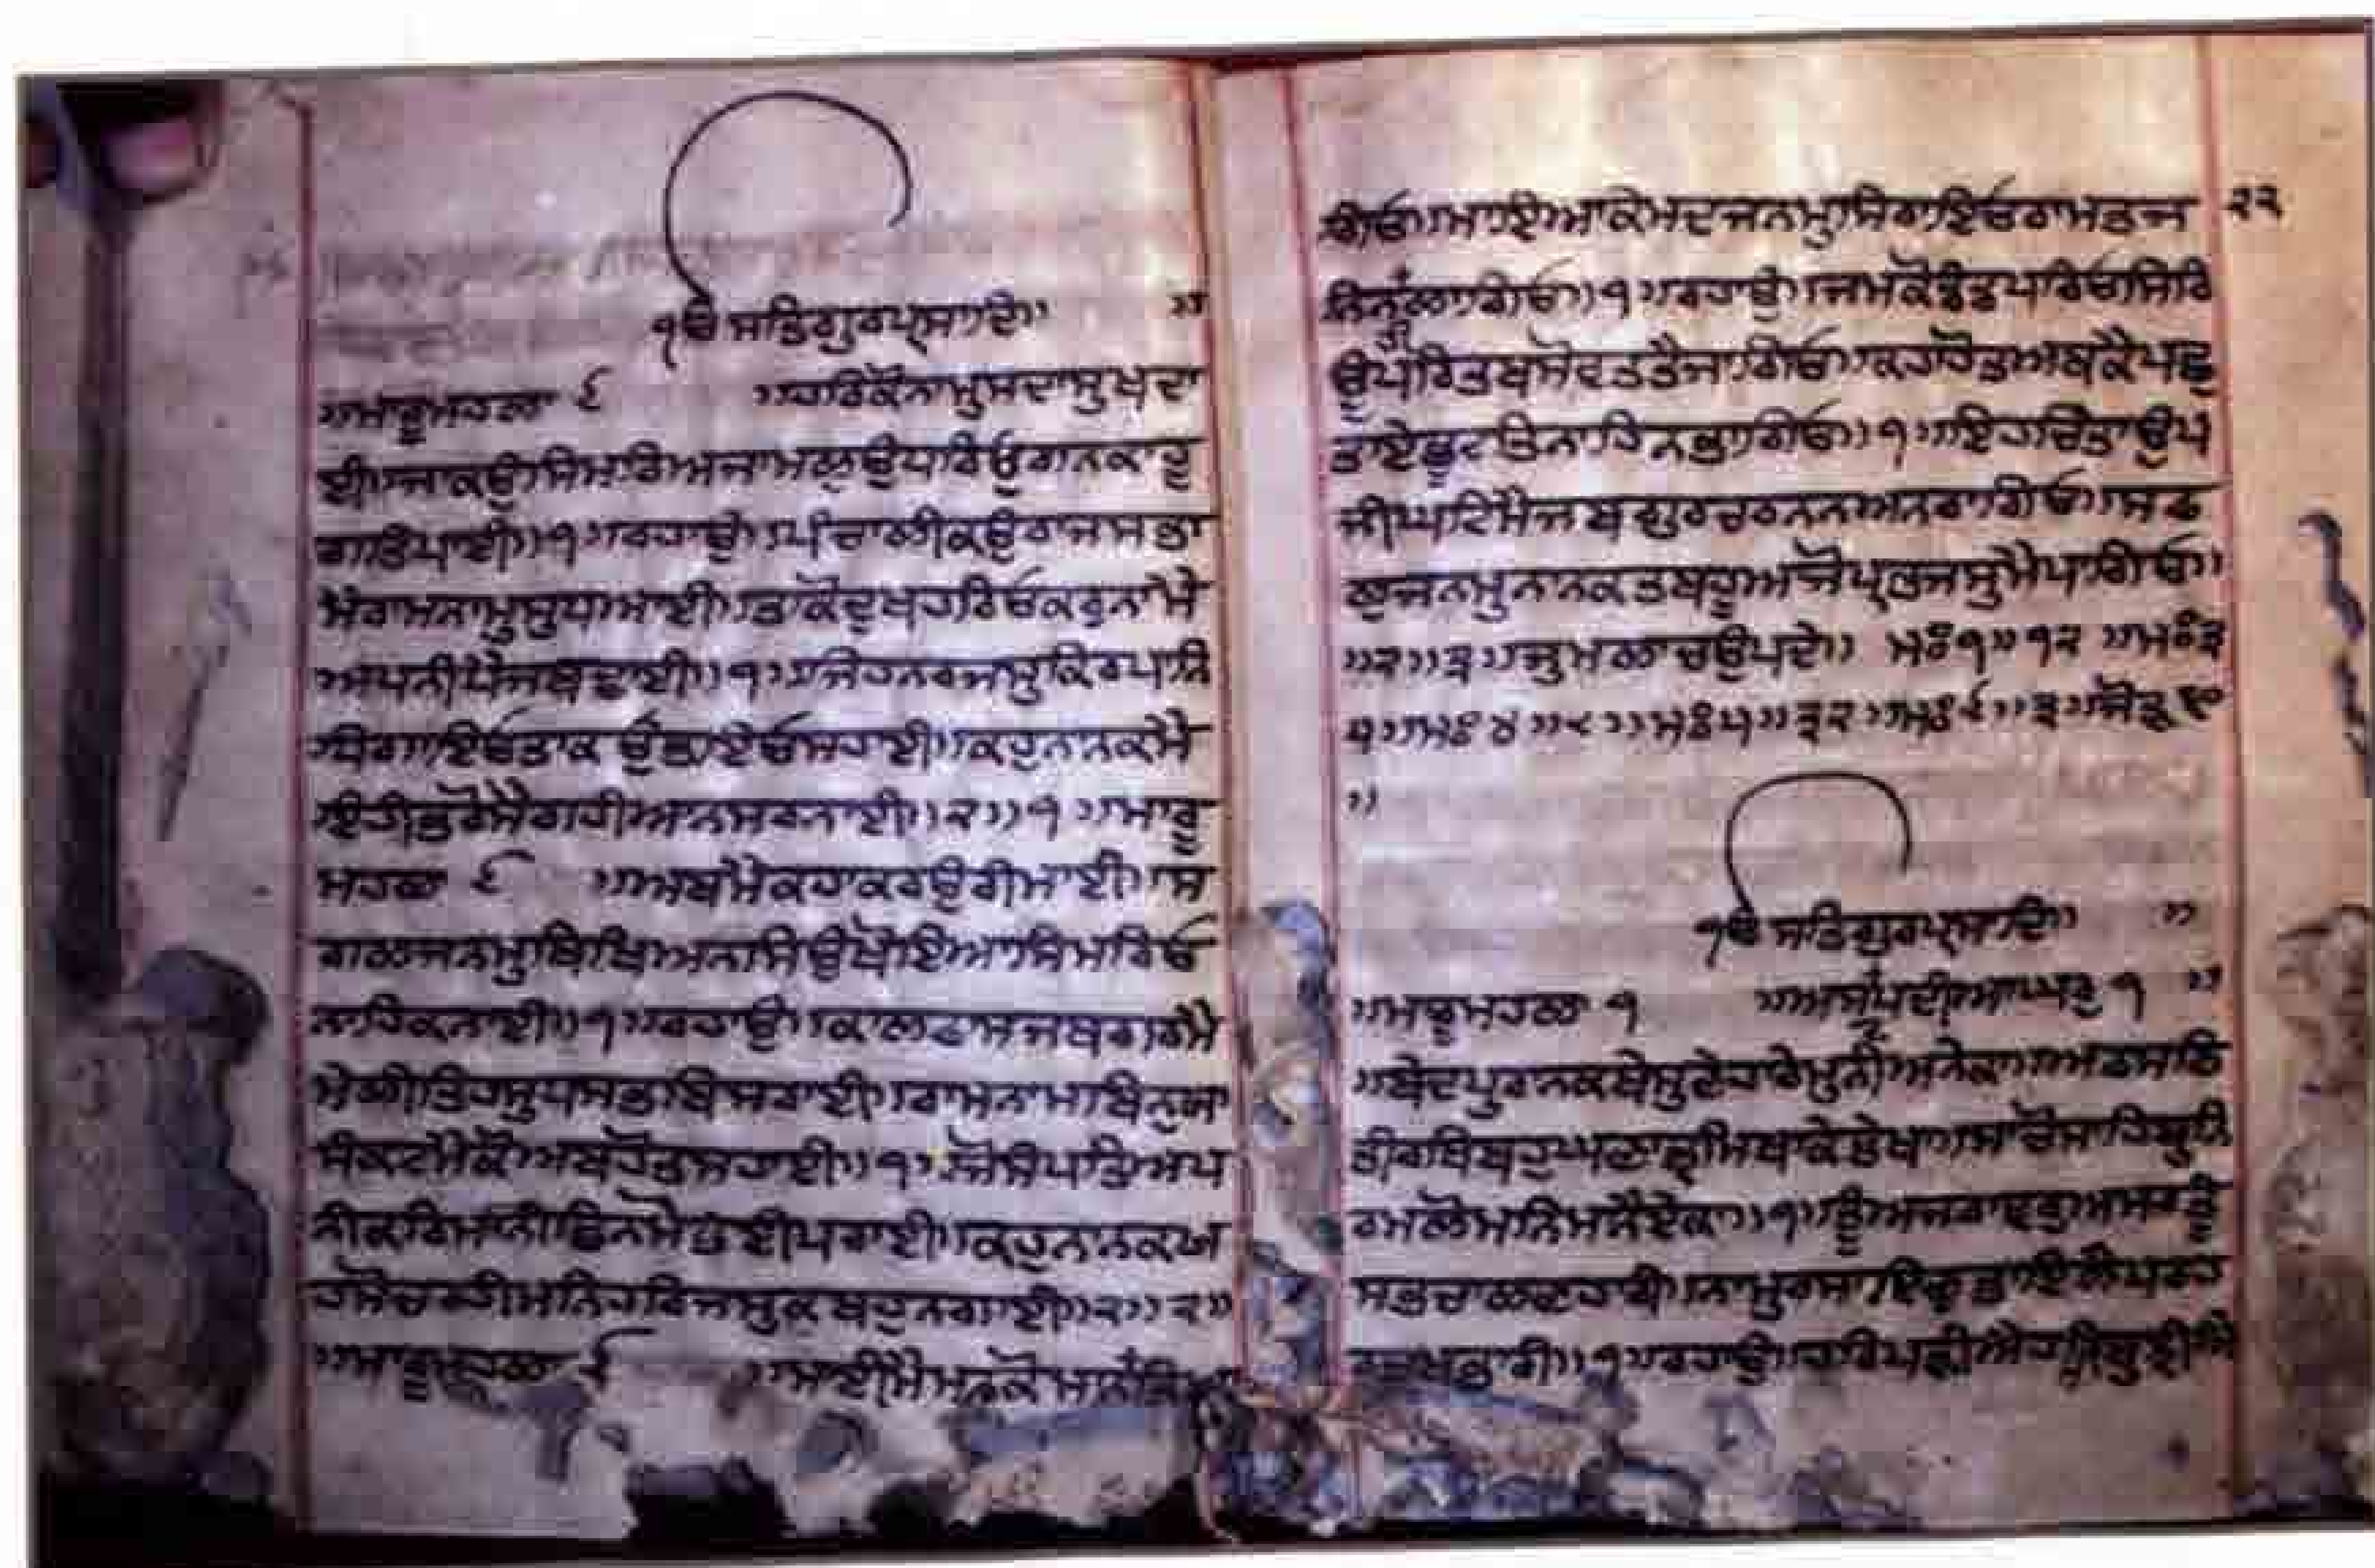 ੴ ਸਤਿਗੁਰਪ੍ਰਸਾਦਿ॥ ॥
॥ਮਾਰੂਮਹਲਾ ੯ ॥ਹਰਿਕੋਨਾਮੁਸਦਾਸੁਖਦਾ
ਈ॥ਜਾਕਉਸਿਮਰਿਅਜਾਮਲੁਉਧਰਿਓਗਨਕਾਹੂ
ਗਤਿਪਾਈ॥੧॥ਰਹਾਉ॥ਪੰਚਾਲੀਕਉਰਾਜਸਭਾ
ਮੈਰਾਮਨਾਮੁਸੁਧਆਈ॥ਤਾਕੋਦੂਖਹਰਿਓਕਰੁਨਾਮੈ
ਅਪਨੀਪੈਜਬਢਾਈ॥੧॥ਜਿਹਨਰਜਸੁਕਿਰਪਾਨਿ
ਧਿਗਾਇਓਤਾਕਉਭਇਓਸਹਾਈ॥ਕਹੁਨਾਨਕਮੈ
ਇਹੀਭਰੋਸੈਗਹੀਆਨਸਰਨਾਈ॥੨॥੧॥ਮਾਰੂ
ਮਹਲਾ ੯ ॥ਅਬਮੈਕਹਾਕਰਉਰੀਮਾਈ॥ਸ
ਗਲਜਨਮੁਬਿਖਿਅਨਸਿਉਖੋਇਆਸਿਮਰਿਓ
ਨਾਹਿਕਨਾਈ॥੧॥ਰਹਾਉ॥ਕਾਲਫਾਸਜਬਗਰਮੈ
ਮੇਲੀਤਿਹਸੁਧਸਭਬਿਸਰਾਈ॥ਰਾਮਨਾਮਬਿਨੁਯਾ
ਸੰਕਟਮੈਕੋਅਬਹੋਤਸਹਾਈ॥੧॥ਜੋਸੰਪਤਿਅਪ
ਨੀਕਰਿਮਾਨੀਛਿਨਮੈਭਈਪਰਾਈ॥ਕਹੁਨਾਨਕਯ
ਹਸੋਚਰਹੀਮਨਿਹਰਿਜਸੁਕਬਹੂਨਗਾਈ॥੨॥੨॥
॥ਮਾਰੂਮਹਲਾ ੯ ॥ਮਾਈਮੈਮਨਕੋਮਾਨੁ
੨੨
ਗਿਓ॥ਮਾਇਆਕੇਮਦਜਨਮੁਸਿਰਾਇਓਰਾਮਭਜ
ਨਿਨਲਾਗਿਓ॥੧॥ਰਹਾਉ॥ਜਮਕੋਡੰਡਪਰਿਓਸਿਰਿ
ਊਪਰਿਤਬਸੋਵਤਤੈਜਾਗਿਓ॥ਕਹਾਹੋਤਅਬਕੈਪਛੁ
ਤਾਏਛੂਟਤਿਨਾਹਿਨਭਾਗਿਓ॥੧॥ਇਹਚਿੰਤਾਉਪ
ਜੀਘਟਿਮੈਜਬਗੁਰਚਰਨਨਅਨਰਾਗਿਓ॥ਸਫ
ਲੁਜਨਮੁਨਾਨਕਤਬਹੂਆਜੋਪ੍ਰਭਜਸੁਮੈਪਾਗਿਓ॥
॥੨॥੩॥ਜੁਮਲਾਚਉਪਦੇ॥ ਮਃ੧॥੧੨ ॥ਮਃ੩
੫॥ਮਃ੪॥੮॥ਮਃ੫॥੩੨॥ਮਃ੯॥੩॥ਜੋੜੁ੬੦
॥
ੴ ਸਤਿਗੁਰਪ੍ਰਸਾਦਿ॥ ॥
॥ਮਾਰੂਮਹਲਾ ੧ ॥ਅਸਟਪਦੀਆਘਰੁ ੧ ॥
॥ਬੇਦਪੁਰਾਨਕਥੇਸੁਣੇਹਾਰੇਮੁਨੀਅਨੇਕਾ॥ਅਠਸਠਿ
ਤੀਰਥਿਬਹੁਘਣਾਭ੍ਰਮਿਥਾਕੇਭੇਖਾ॥ਸਾਚੋਸਾਹਿਬੁਨਿ
ਰਮਲੋਮਨਿਮਾਨੈਏਕਾ॥੧॥ਤੂੰਅਜਰਾਵਰੁਅਮਰਤੂੰ
ਸਭਚਾਲਣਹਾਰੀ॥ਨਾਮੁਰਸਾਇਣੁਭਾਇਲੈਪਰਹ
ਰਿਦੁਖੁਭਾਰੀ॥੧॥ਰਹਾਉ॥ਹਰਿਪੜੀਐਹਰਿਬੁਝੀਐ